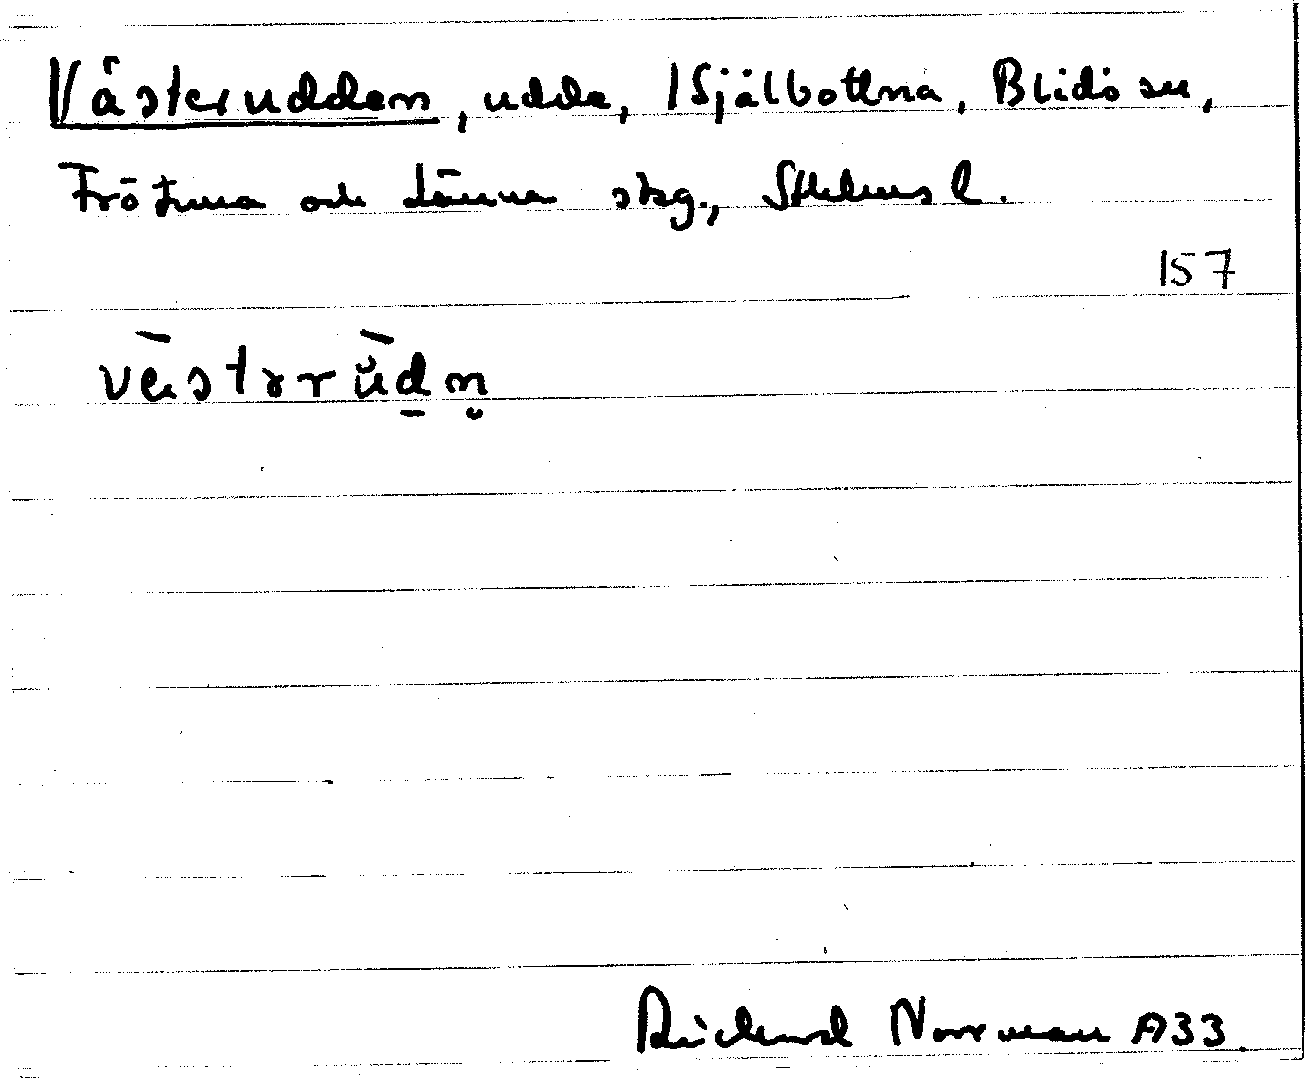 Västerudden, udde, 1 Själbottna, Blidö sn,
Frötuna och Länna skg., Sthlms l.
157
västərudn̥
Rickard Norrman A33.